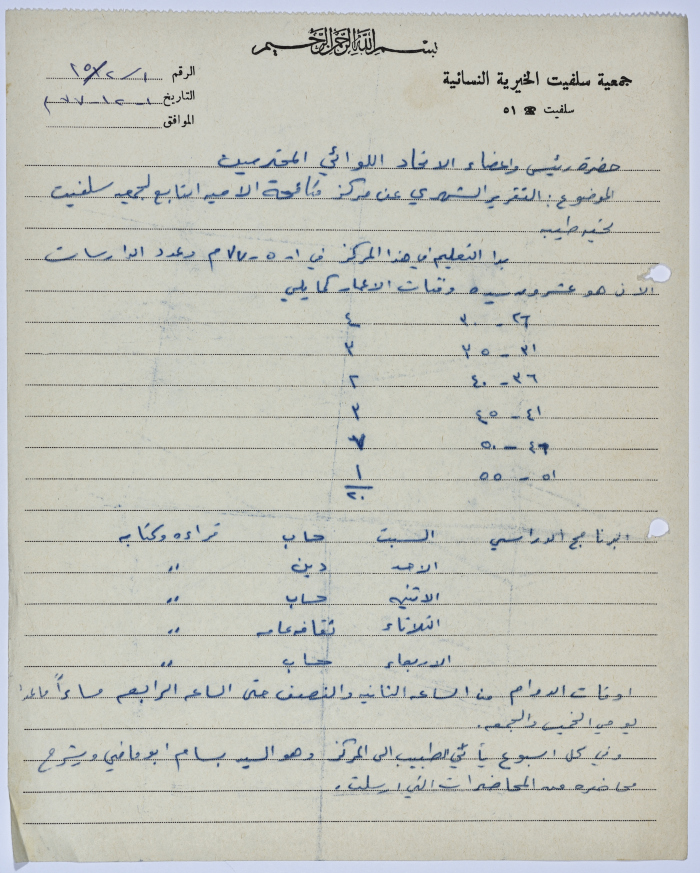 بسم الله الرحمن الرحيم
جمعية سلفيت الخيرية النسائية
سلفيت ☎ ٥١
الرقم ١/٢/٢٥
التاريخ ١-١٢-٧٧م
الموافق
حضرة رئيس واعضاء الاتحاد اللوائي المحترمين
الموضوع: التقرير الشهري عن مركز مكافحة الاميه التابع لجمعيه سلفيت
تحيه طيبه
بدا التعليم في هذا المركز في ١-٥-٧٧م وعدد الدارسات
الان هو عشرون سيده وفئات الاعمار كما يلي
٢٦ - ٣٠ ٤
٣١ - ٣٥ ٣
٣٦ - ٤٠ ٢
٤١ - ٤٥ ٣
٤٦ - ٥٠ ٧
٥١ - ٥٥ ١
٢٠
البرنامج الدراسي السبت حساب قراءه وكتابه
الاحد دين "
الاثنين حساب "
الثلاثاء ثقافه عامه "
الاربعاء حساب "
اوقات الدوام من الساعه الثانيه والنصف حتى الساعه الرابعه مساءاً ماعدا
يومي الخميس والجمعه.
وفي كل اسبوع يأتي الطبيب الى المركز وهو السيد بسام ابو ماضي ويشرح
محاضره من المحاضرات التي ارسلت.